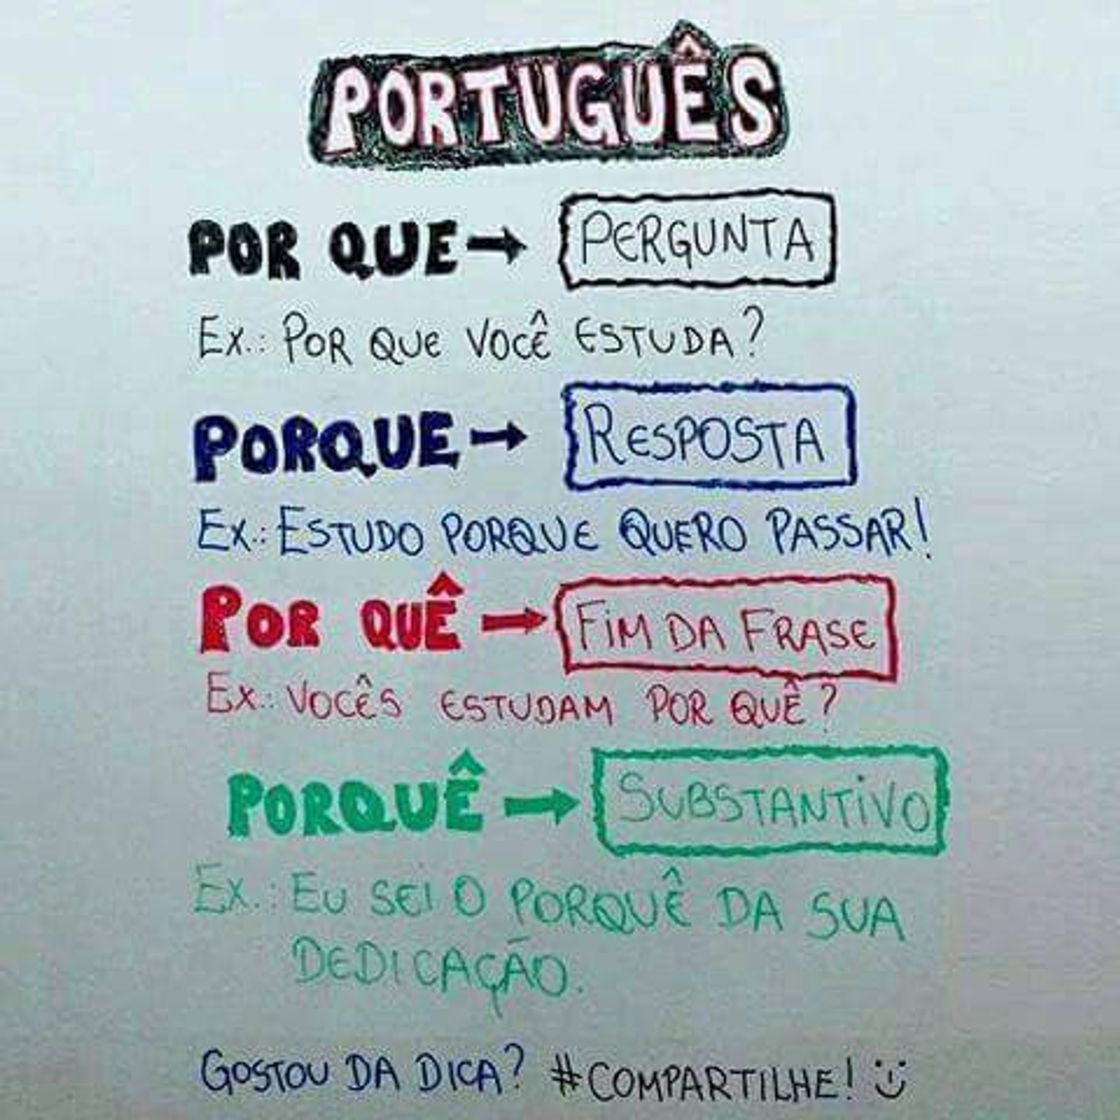 PORTUGUÊS
POR QUE → PERGUNTA
Ex.: POR QUE VOCÊ ESTUDA?
PORQUE → RESPOSTA
Ex.: ESTUDO PORQUE QUERO PASSAR!
POR QUÊ → FIM DA FRASE
Ex.: VOCÊS ESTUDAM POR QUÊ?
PORQUÊ → SUBSTANTIVO
Ex.: EU SEI O PORQUÊ DA SUA
DEDICAÇÃO.
GOSTOU DA DICA? #COMPARTILHE! :)